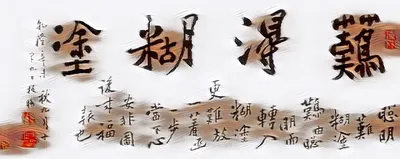 難得糊塗
聰明
難
糊塗
難由聰
明而
轉入
糊塗
更難放
一着退
一步
當下心
安非圖
後來福
報也
乾隆
秋九月十